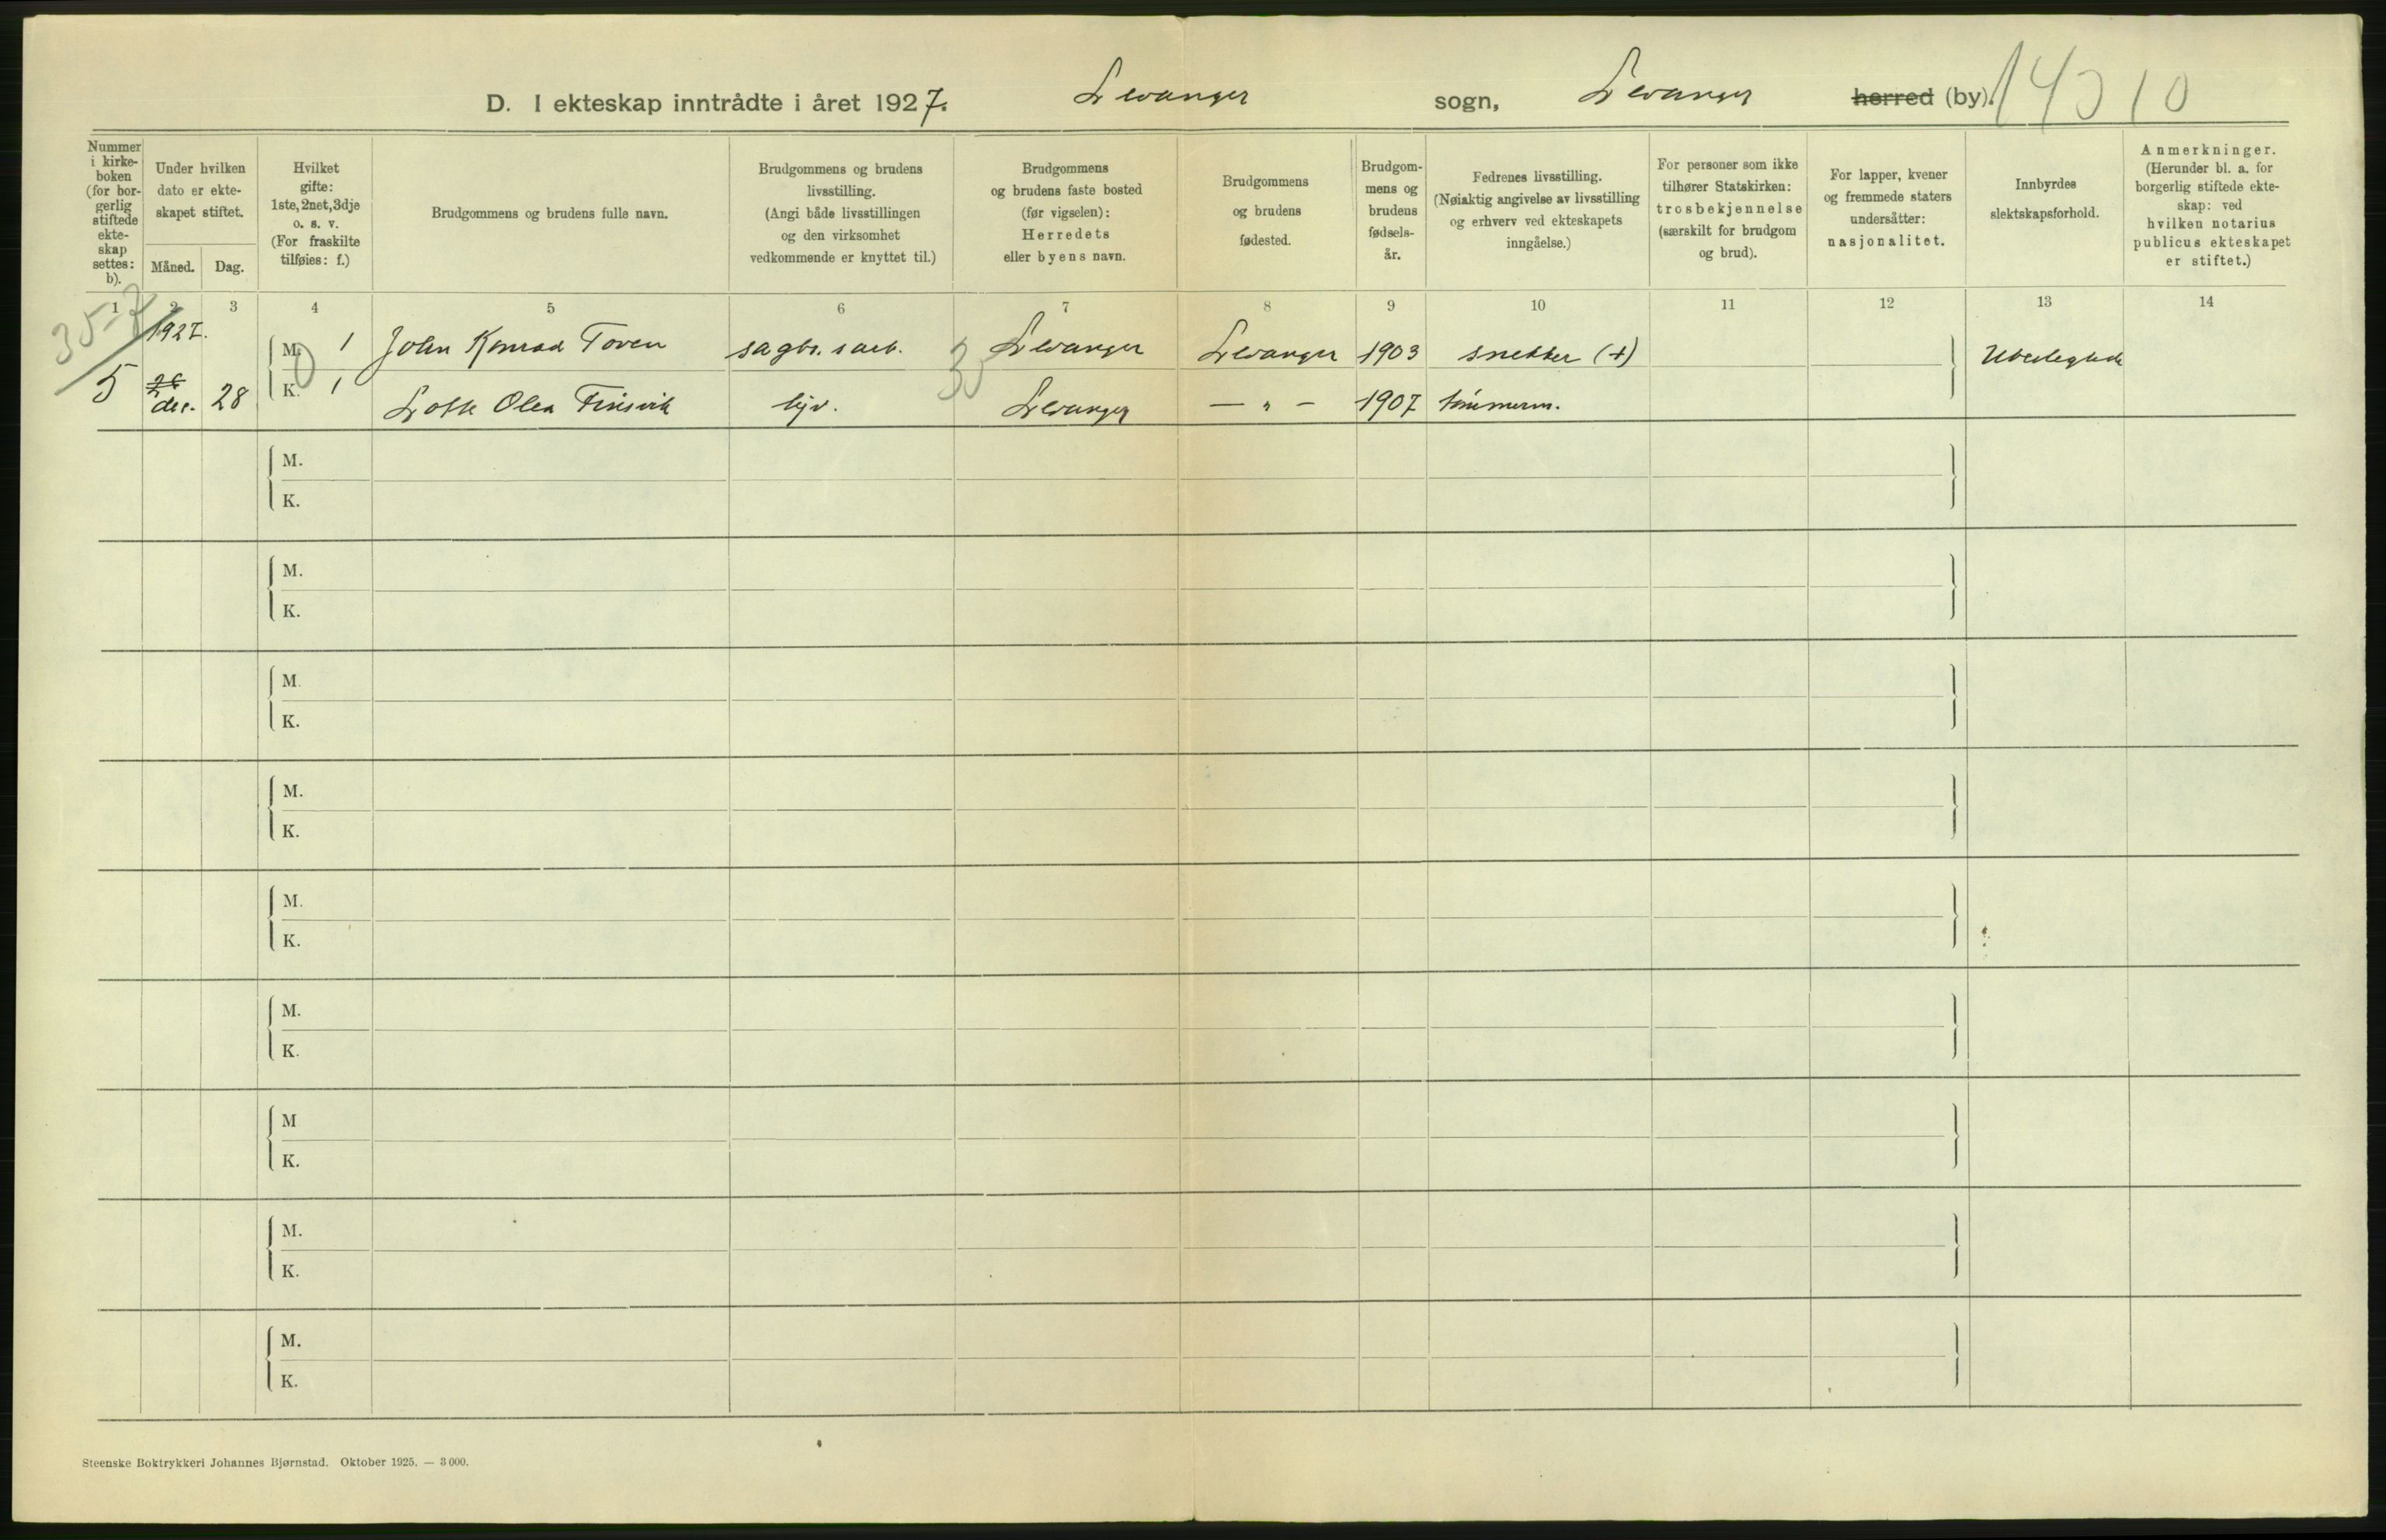 D. I ekteskap inntrådte i året 1927. Levanger sogn, Levanger herred (by). 14310
Nummer i kirke-boken (for bor-gerlig stiftede ekte-skap settes: b).
Under hvilken dato er ekte-skapet stiftet.
Måned. Dag.
Hvilket gifte: 1ste, 2net, 3dje o. s. v. (For fraskilte tilføies: f.)
Brudgommens og brudens fulle navn.
Brudgommens og brudens livsstilling. (Angi både livsstillingen og den virksomhet vedkommende er knyttet til.)
Brudgommens og brudens faste bosted (før vigselen): Herredets eller byens navn.
Brudgommens og brudens fødested.
Brudgom-mens og brudens fødsels-år.
Fedrenes livsstilling. (Nøiaktig angivelse av livsstilling og erhverv ved ekteskapets inngåelse.)
For personer som ikke tilhører Statskirken: trosbekjennelse (særskilt for brudgom og brud).
For lapper, kvener og fremmede staters undersåtter: nasjonalitet.
Innbyrdes slektskapsforhold.
Anmerkninger. (Herunder bl. a. for borgerlig stiftede ekte-skap: ved hvilken notarius publicus ekteskapet er stiftet.)
1 2 3 4 5 6 7 8 9 10 11 12 13 14
357
1927.
M. 1 John Konrad Toven sagbr.sarb. Levanger Levanger 1903 snekker (+) Ubeslegtede
0 35
5 28 des. 28 K. 1 Lotte Olea Finsvik hjv. Levanger — " — 1907 tømmerm.
M.
K.
M.
K.
M.
K.
M.
K.
M.
K.
M.
K.
M
K.
M.
K.
M.
K.
Steenske Boktrykkeri Johannes Bjørnstad. Oktober 1925. — 3 000.